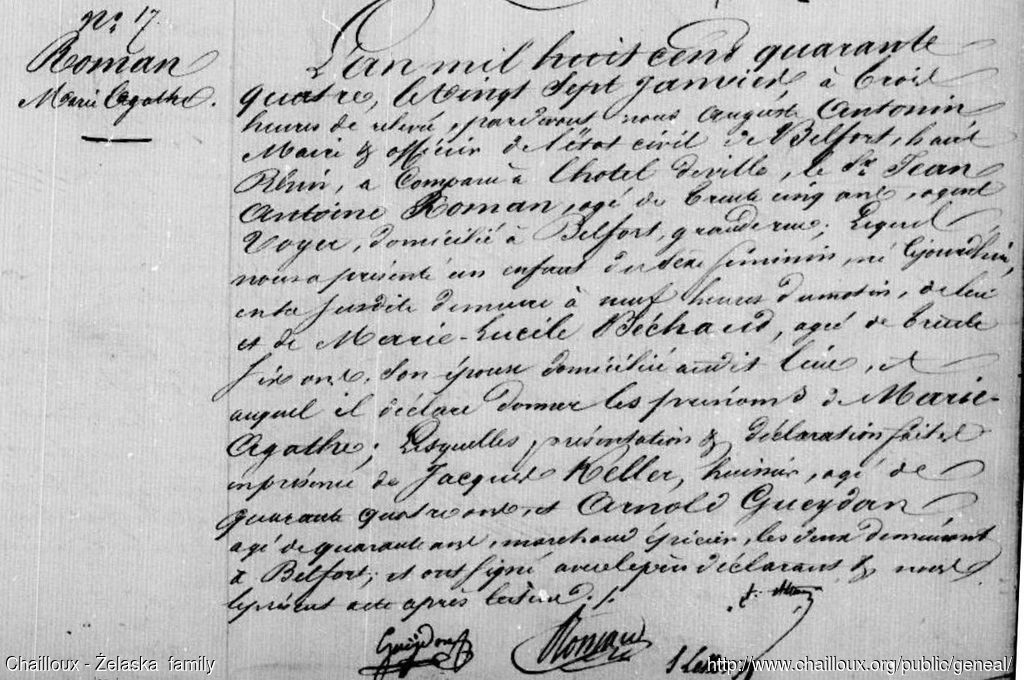 No. 17.
Roman
Marie Agathe.
L'an mil huit cent quarante
quatre, le vingt sept Janvier, à trois
heures de relevée, pardevant nous Auguste Antonin
Maire & officier de l'état civil de Belfort, haut
Rhin, a comparu à l'hotel de ville, le Sr. Jean
Antoine Roman, agé de trente cinq ans, agent
Voyer, domicilié à Belfort, grande rue; Lequel
nous a présenté un enfant du sexe féminin, né cejourd'hui,
en sa susdite demeure à neuf heures du matin, de lui
et de Marie-Lucile Béchaud, agée de trente
six ans, son épouse domiciliée audit lieu, et
auquel il déclare donner les prénoms de Marie-
Agathe; Lesquelles présentation & déclaration faites
en présence de Jacques Keller, huissier, agé de
quarante quatre ans, et Arnold Gueydan
agé de quarante ans, marchand épicier, les deux demeurant
à Belfort; et ont signé avec le père déclarant & nous
le présent acte après lecture ./.
Gueydan
Roman
Chailloux - Żelaska family
http://www.chailloux.org/public/geneal/